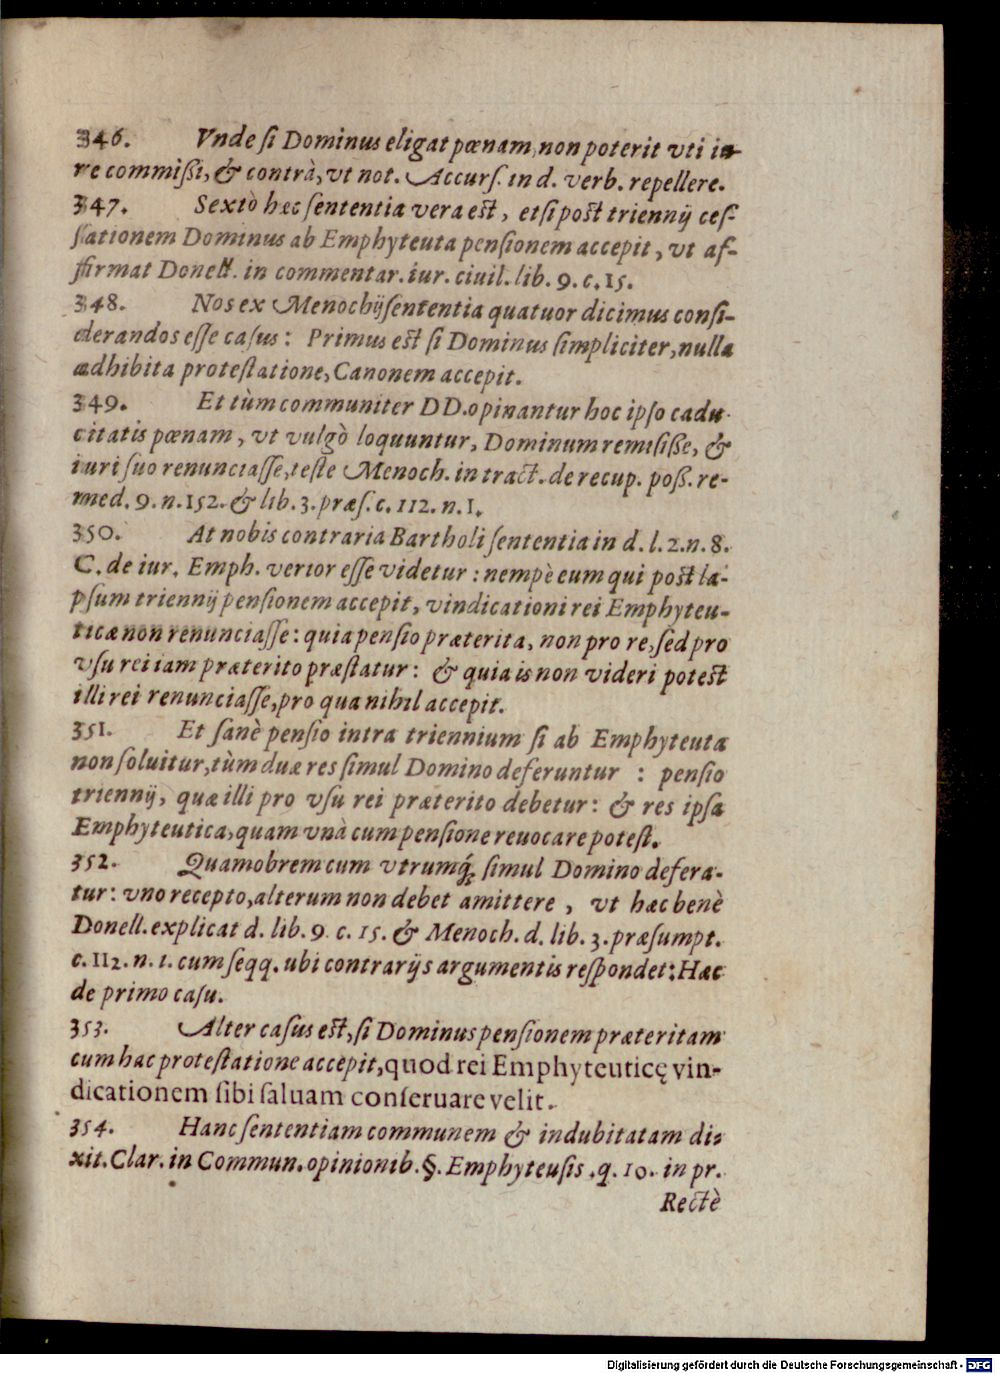 346. Vnde ſi Dominus eligat pœnam, non poterit vti iu-
re commißi, & contrà, vt not. Accurſ. in d. verb. repellere.
347. Sextò hæc ſententia vera eſt, etſi poſt triennij ceſ-
ſationem Dominus ab Emphyteuta penſionem accepit, vt af-
firmat Donell. in commentar. iur. ciuil. lib. 9. c. 15.
348. Nos ex Menochij ſententia quatuor dicimus conſi-
derandos eſſe caſus: Primus eſt ſi Dominus ſimpliciter, nulla
adhibita proteſtatione, Canonem accepit.
349. Et tùm communiter DD. opinantur hoc ipſo cadu-
citatis pœnam, vt vulgò loquuntur, Dominum remiſiße, &
iuri ſuo renunciaſſe, teſte Menoch. in tract. de recup. poß. re-
med. 9. n. 152. & lib. 3. præſ. c. 112. n. 1.
350. At nobis contraria Bartholi ſententia in d. l. 2. n. 8.
C. de iur. Emph. verior eſſe videtur: nempè eum qui poſt la-
pſum triennij penſionem accepit, vindicationi rei Emphyteu-
ticæ non renunciaſſe: quia penſio præterita, non pro re, ſed pro
vſu rei iam præterito præſtatur: & quia is non videri poteſt
illi rei renunciaſſe, pro qua nihil accepit.
351. Et ſanè penſio intra triennium ſi ab Emphyteuta
non ſoluitur, tùm duæ res ſimul Domino deferuntur : penſio
triennij, quæ illi pro vſu rei præterito debetur: & res ipſa
Emphyteutica, quam vnà cum penſione reuocare poteſt.
352. Quamobrem cum vtrumq́; ſimul Domino defera-
tur: vno recepto, alterum non debet amittere, vt hæc benè
Donell. explicat d. lib. 9. c. 15. & Menoch. d. lib. 3. præſumpt.
c. 112. n. 1. cum ſeqq. ubi contrarijs argumentis reſpondet: Hæc
de primo caſu.
353. Alter caſus eſt, ſi Dominus penſionem præteritam
cum hac proteſtatione accepit, quod rei Emphyteuticę vin-
dicationem ſibi ſaluam conſeruare velit.
354. Hanc ſententiam communem & indubitatam di-
xit. Clar. in Commun. opinionib. §. Emphyteuſis. q. 10. in pr.
Rectè
Digitalisierung gefördert durch die Deutsche Forschungsgemeinschaft - DFG